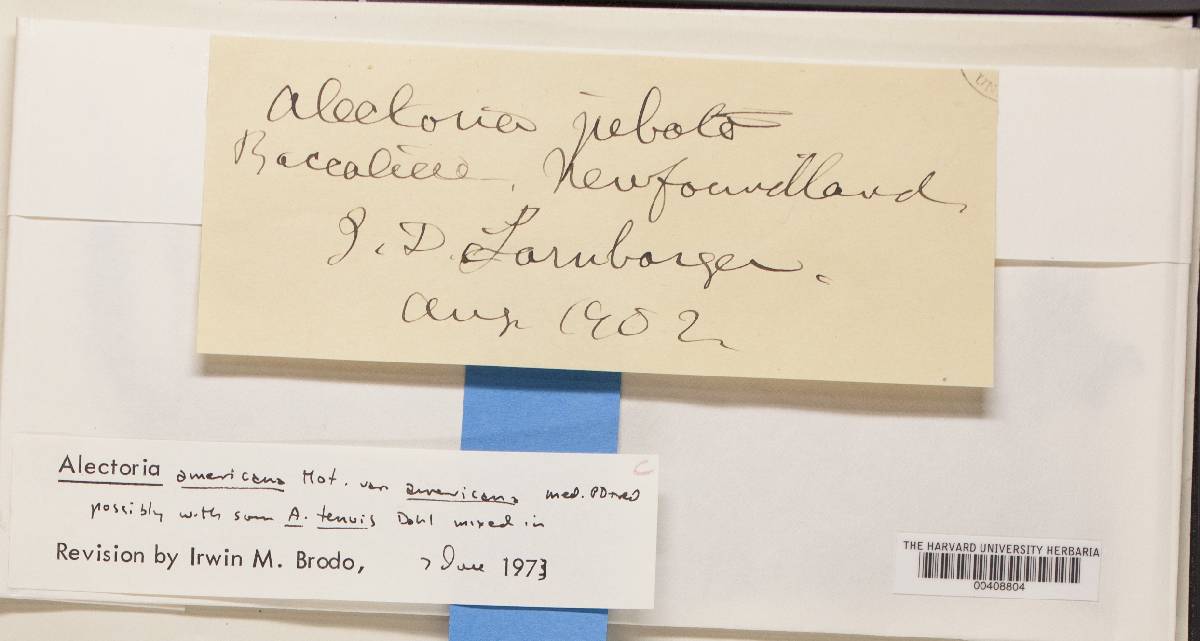 Alectoria jubata
Baccalieu, Newfoundland,
J. D. Sornborger.
Aug. 1902
Alectoria americana Mot. var americana med. PD+red
possibly with some A. tenuis Dahl mixed in
Revision by Irwin M. Brodo, 7 June 1973
C
THE HARVARD UNIVERSITY HERBARIA
00408804